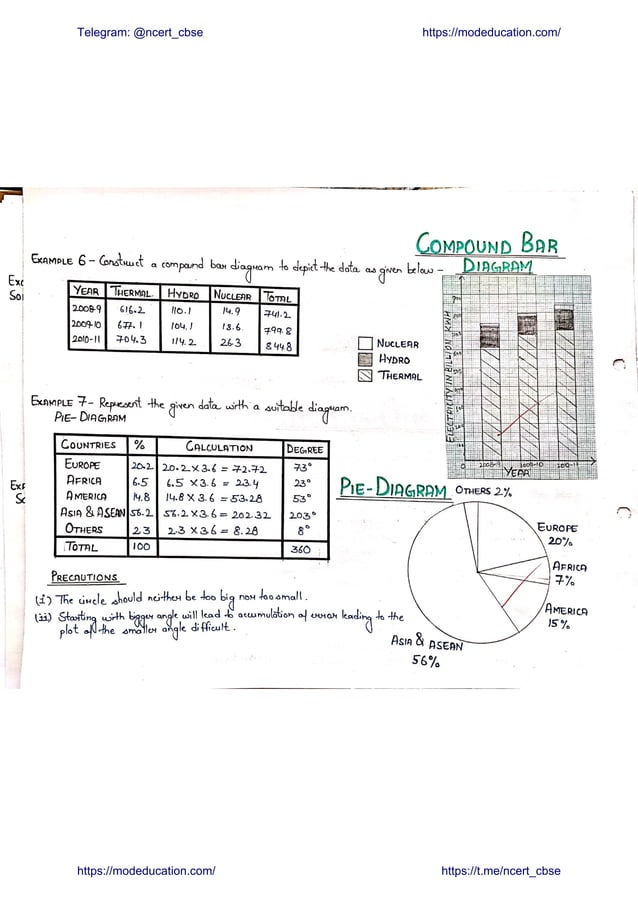 Telegram: @ncert_cbse https://modeducation.com/
COMPOUND BAR
DIAGRAM
EXAMPLE 6 - Construct a compound bar diagram to depict the data as given below -
YEAR THERMAL HYDRO NUCLEAR TOTAL
2008-9 616.2 110.1 14.9 741.2
2009-10 677.1 104.1 18.6 799.8
2010-11 704.3 114.2 26.3 844.8
NUCLEAR
HYDRO
THERMAL
ELECTRICITY IN BILLION KWH
0 2008-9 2009-10 2010-11
YEAR
EXAMPLE 7 - Represent the given data with a suitable diagram.
PIE-DIAGRAM
COUNTRIES % CALCULATION DEGREE
EUROPE 20.2 20.2 X 3.6 = 72.72 73°
AFRICA 6.5 6.5 X 3.6 = 23.4 23°
AMERICA 14.8 14.8 X 3.6 = 53.28 53°
ASIA & ASEAN 56.2 56.2 X 3.6 = 202.32 203°
OTHERS 2.3 2.3 X 3.6 = 8.28 8°
TOTAL 100 360
PIE-DIAGRAM
OTHERS 2%
EUROPE
20%
AFRICA
7%
AMERICA
15%
ASIA & ASEAN
56%
PRECAUTIONS
(i) The circle should neither be too big nor too small.
(ii) Starting with bigger angle will lead to accumulation of error leading to the
plot of the smaller angle difficult.
https://modeducation.com/ https://t.me/ncert_cbse